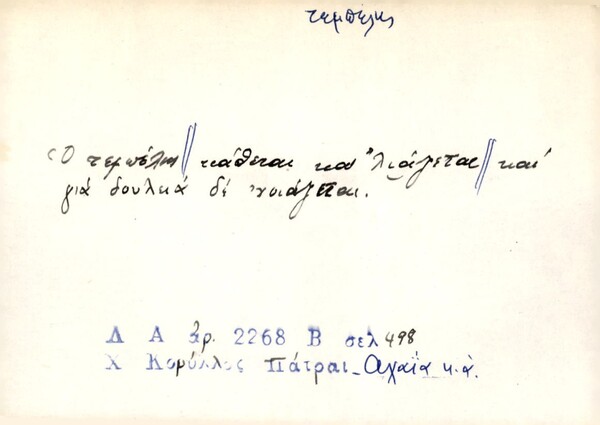 τεμπέλης
Ὁ τεμπέλης // κάθεται και λιάζεται // καί
γιά δουλειά δέ νοιάζεται.
Λ Α ἀρ. 2268 Β σελ 498
Χ Κορύλλος Πάτραι - Αχαΐα κ.ἀ.